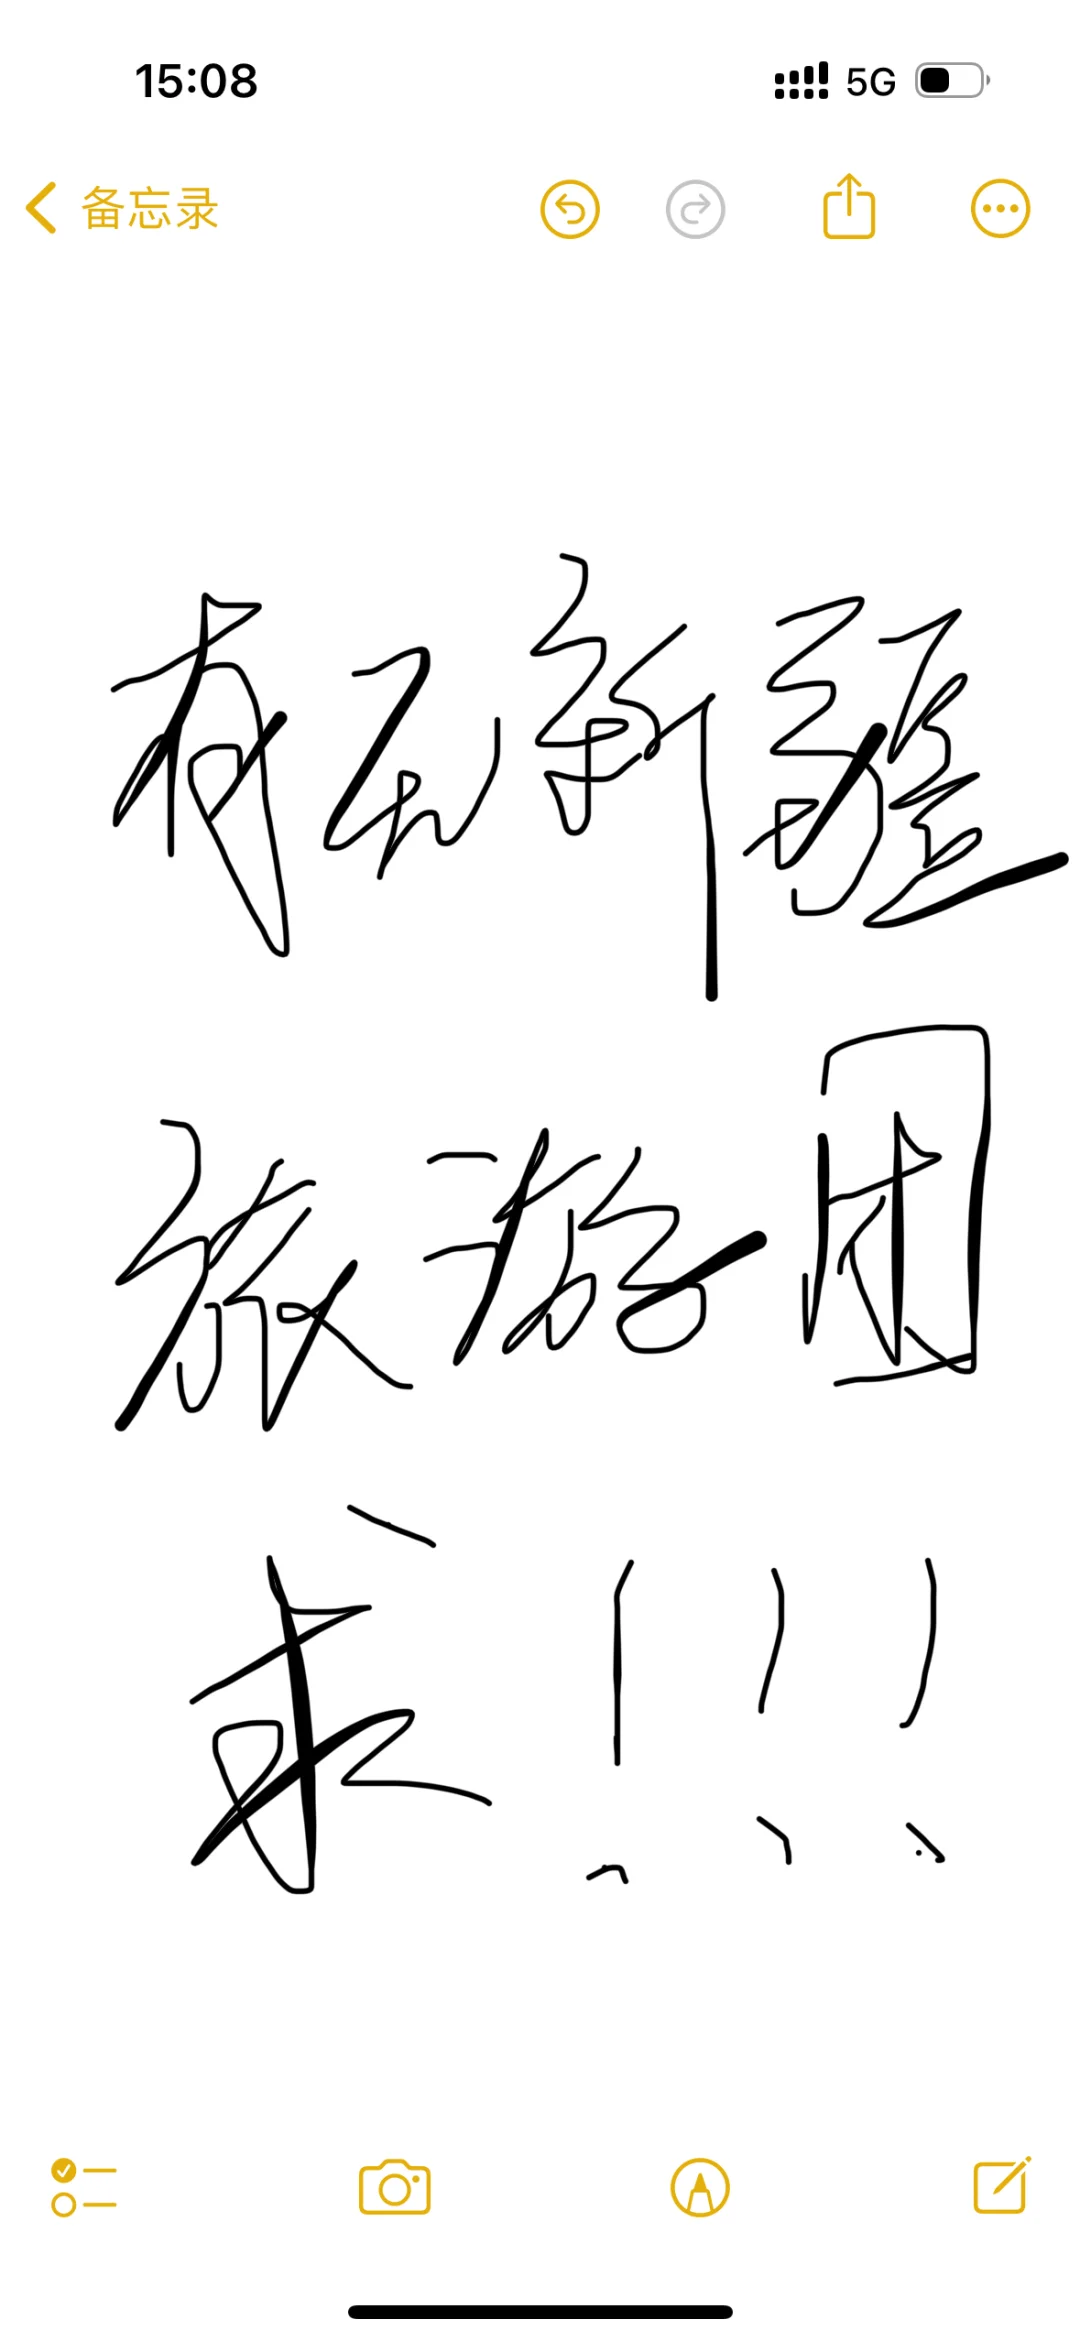 15:08 5G
备忘录
有无新疆
旅游团
求！！！